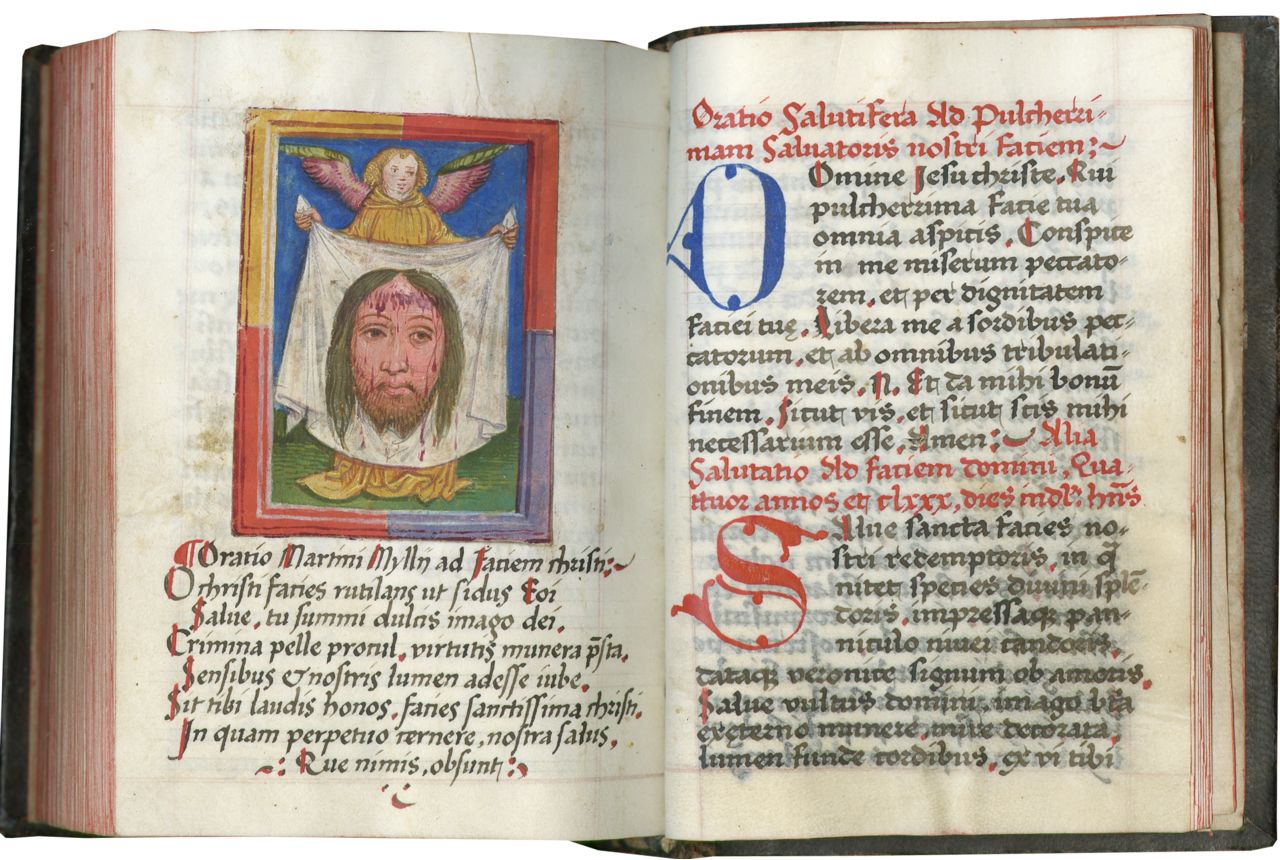 Oratio Martini Mylly ad Faciem christi:
O christi facies rutilans ut sidus Eoi
Salue, tu summi dulcis imago dei.
Crimina pelle procul, virtutis munera p̄sta,
Sensibus & nostris lumen adesse iube.
Sit tibi laudis honos, facies sanctissima christi,
In quam perpetuo cernere, nostra salus.
Rue nimis, obsunt:
Oratio Salutifera Ad Pulcherri-
mam Saluatoris nostri faciem;
Domine Jesu christe, Qui
pulcherrima facie tua
omnia aspicis, Conspice
in me miserum peccato-
rem, et per dignitatem
faciei tuę, Libera me a sordibus pec-
catorum, et ab omnibus tribulati-
onibus meis, N. Et da mihi bonū
finem, sicut vis, et sicut scis mihi
necessarium esse, Amen: Alia
Salutatio Ad faciem domini, Qua-
ttuor annos et clxxx, dies indl: hn̄s
Salue sancta facies no-
stri redemptoris, in q̄
nitet species diuini splē-
doris, impressaq pan-
niculo niuei candoris,
dataq veronice signum ob amoris,
Salue vultus domini, imago br̄a
ex ęterno munere, mire decorata,
lumen funde cordibus, ex vi tibi